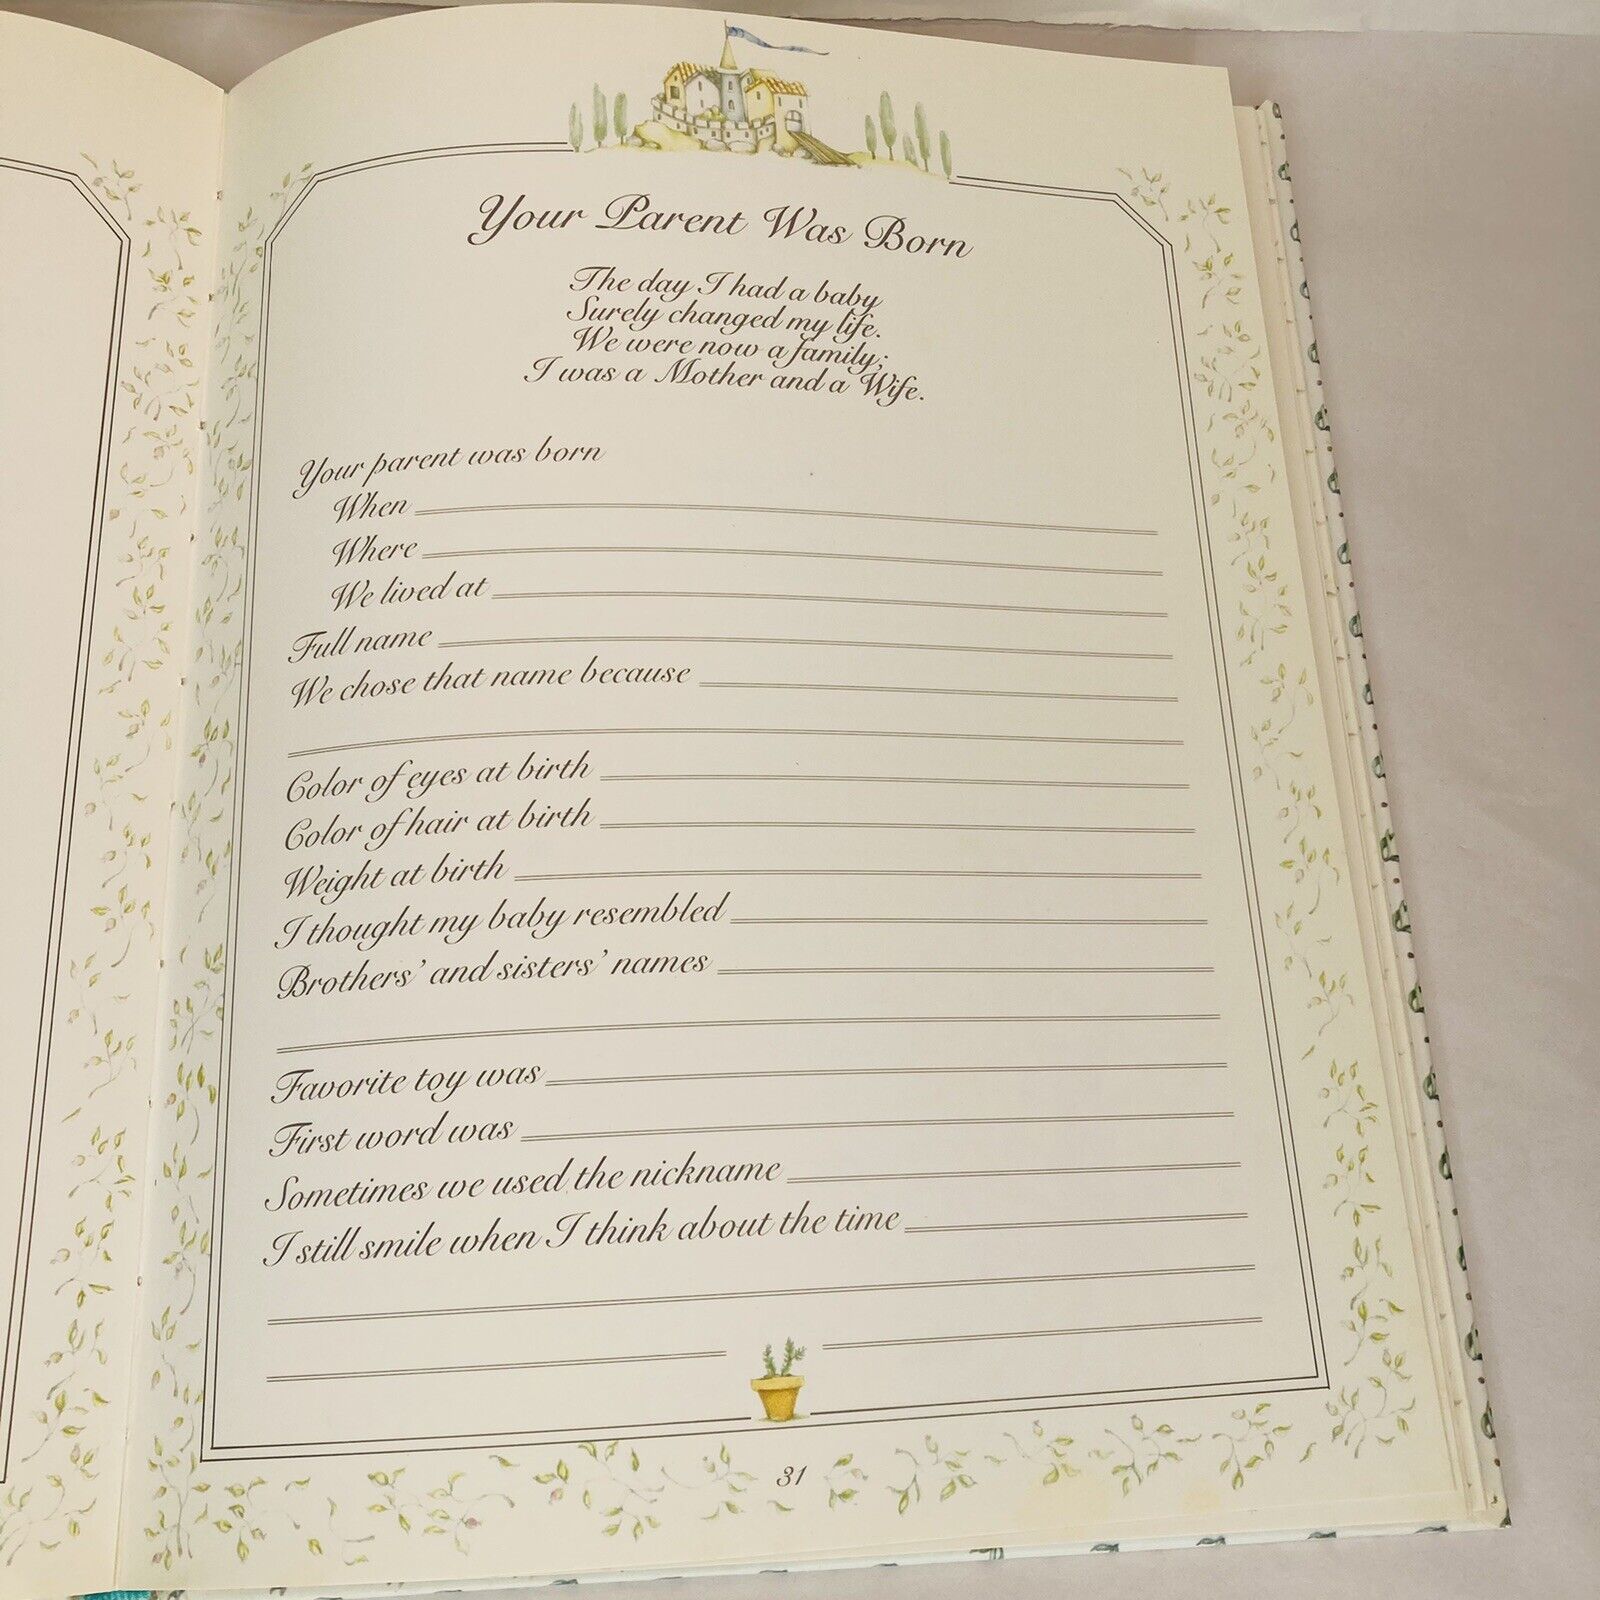 Your Parent Was Born
The day I had a baby
Surely changed my life.
We were now a family;
I was a Mother and a Wife.
Your parent was born
When
Where
We lived at
Full name
We chose that name because
Color of eyes at birth
Color of hair at birth
Weight at birth
I thought my baby resembled
Brothers' and sisters' names
Favorite toy was
First word was
Sometimes we used the nickname
I still smile when I think about the time
31